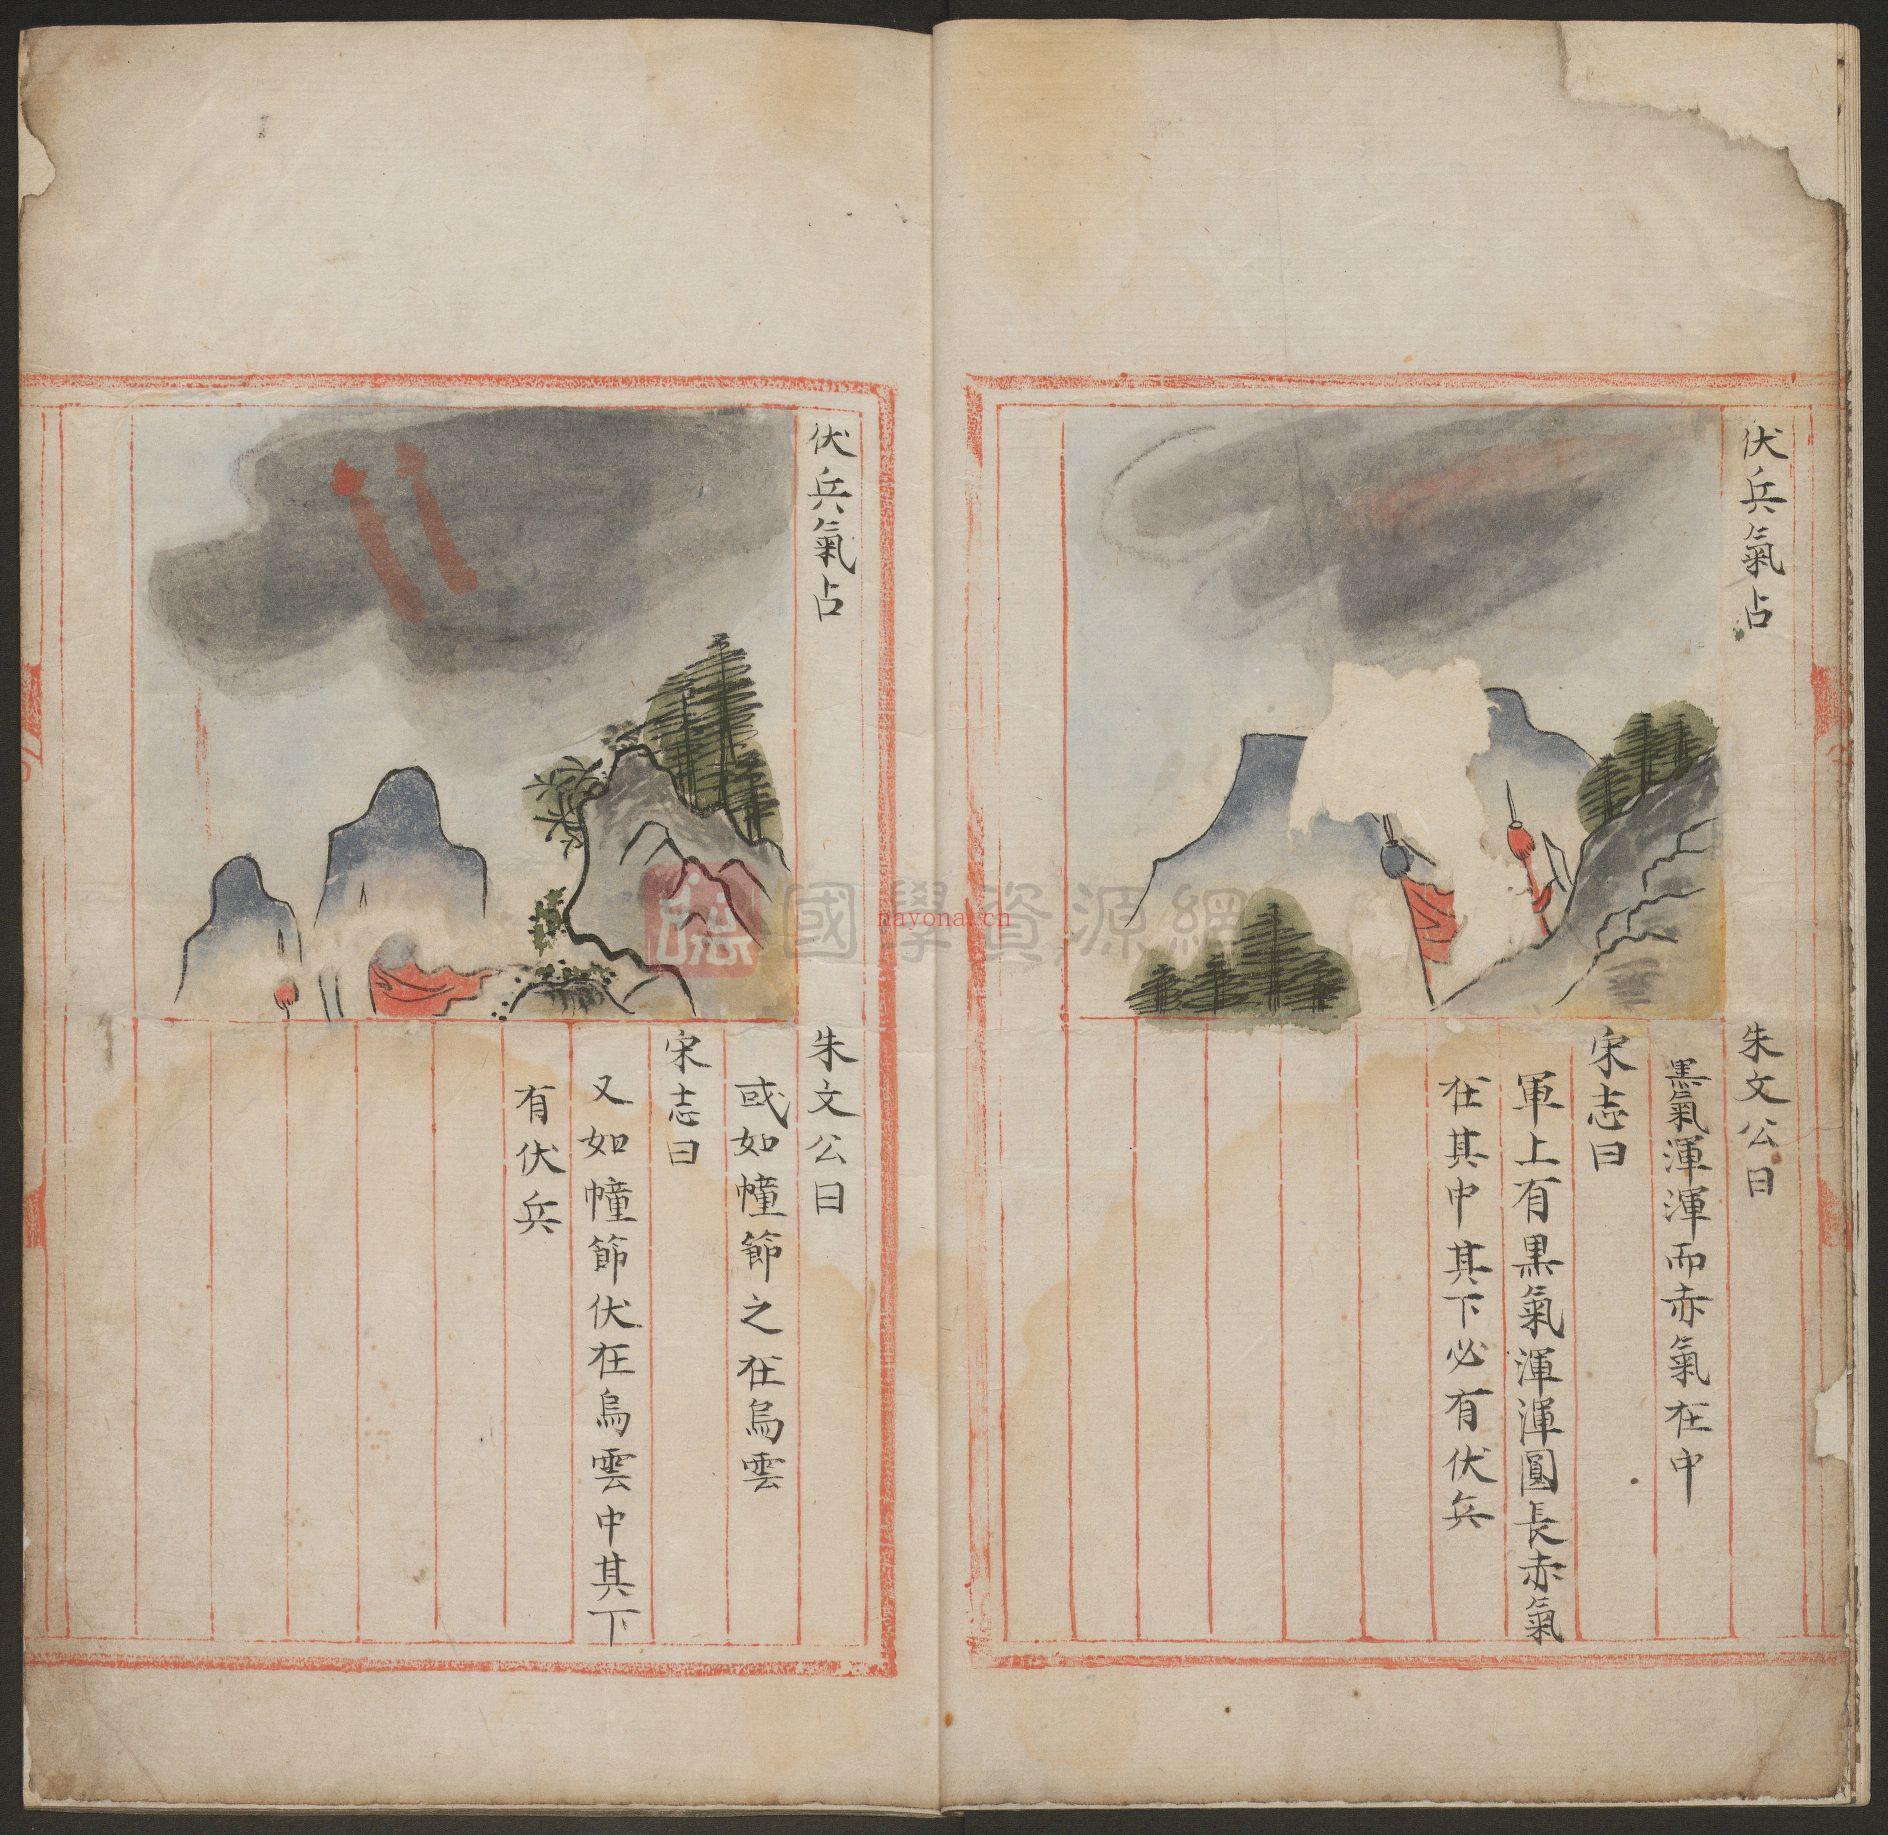 伏兵氣占
朱文公曰
黑氣渾渾而赤氣在中
宋志曰
軍上有黑氣渾渾圓長赤氣
在其中其下必有伏兵
伏兵氣占
朱文公曰
或如幢節之在烏雲
宋志曰
又如幢節伏在烏雲中其下
有伏兵
國學資源網
nayona.cn